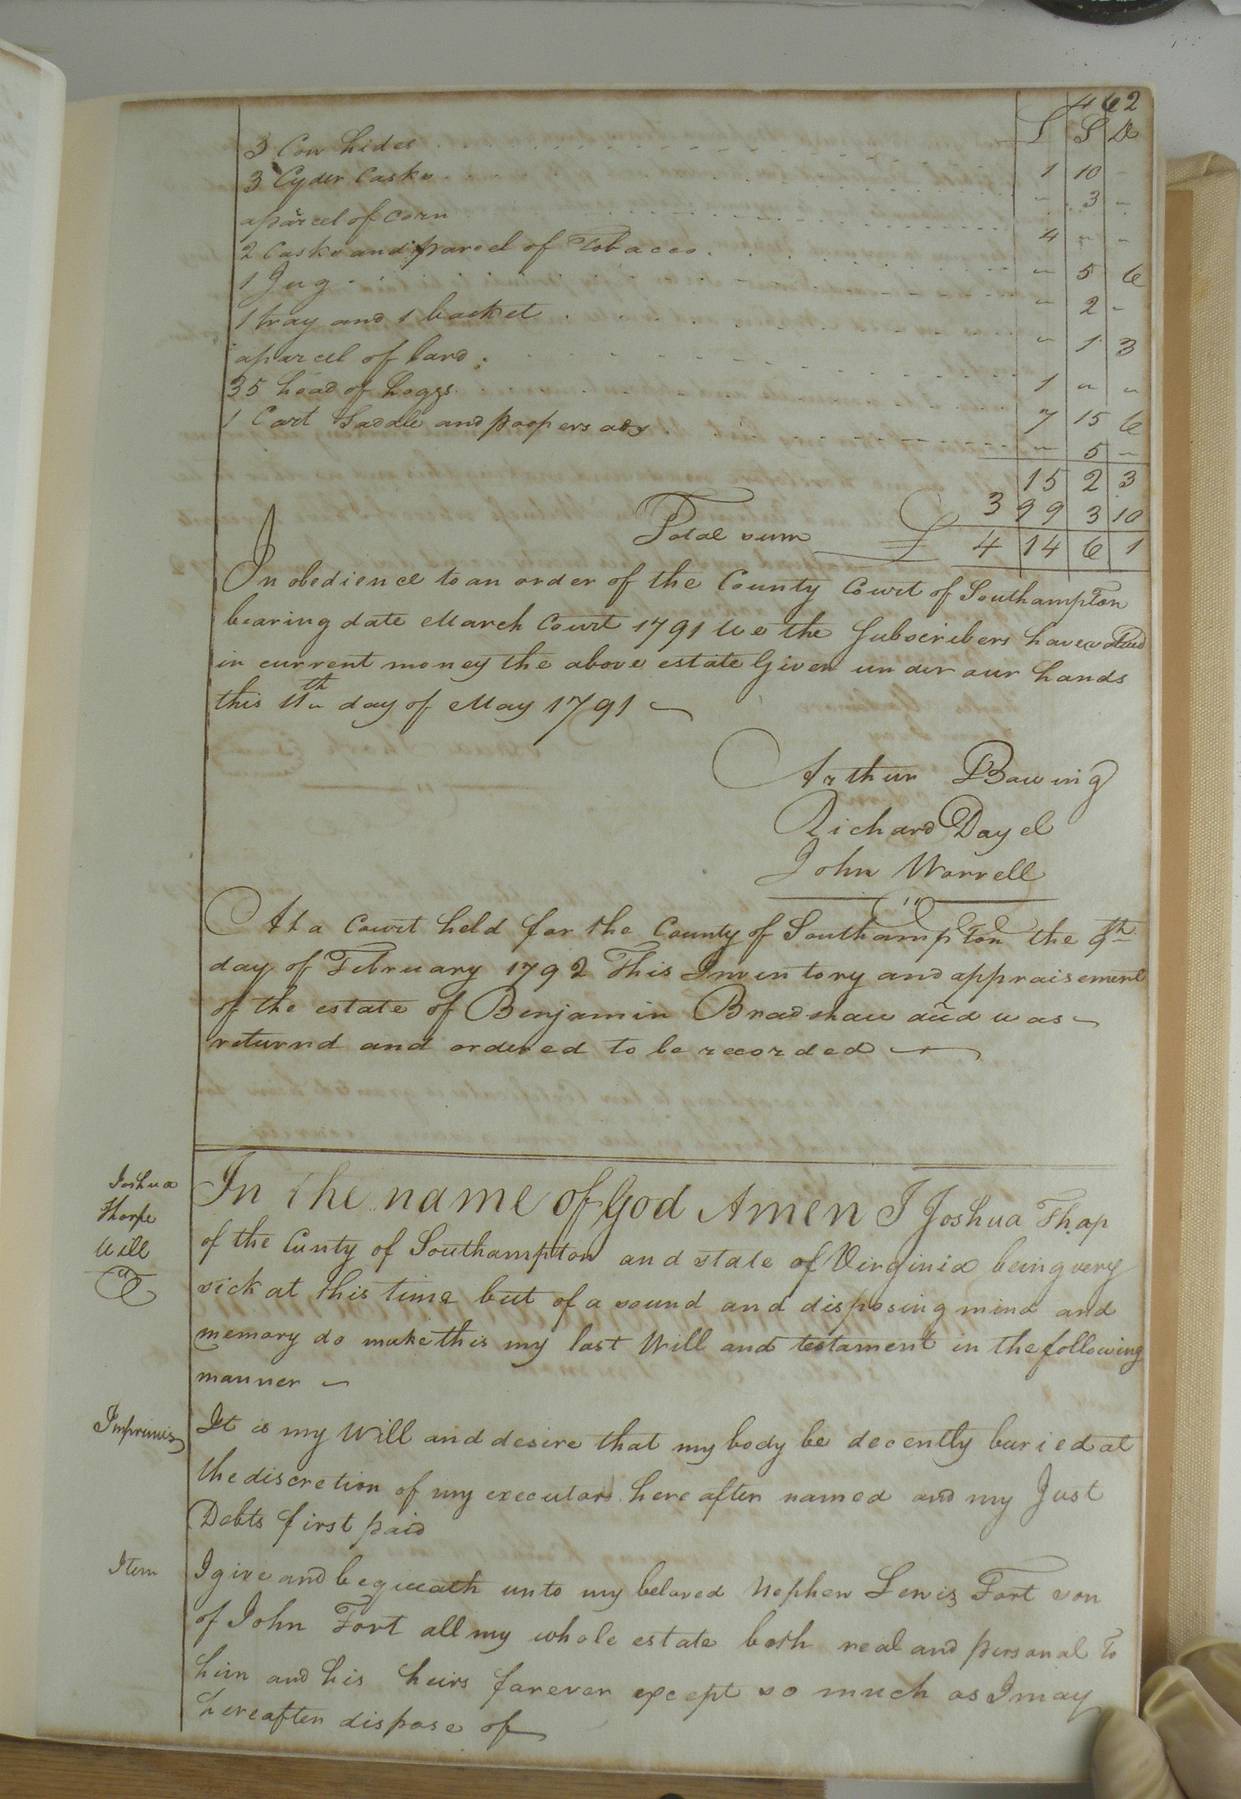 462
L S D
3 Cow hides 1 10 -
3 Cyder Casks - 3 -
a parcel of corn 4 - -
2 Casks and parcel of Tobacco - 5 6
1 Jug - 2 -
1 tray and 1 basket - 1 3
a parcel of lard 1 - -
35 head of hoggs 7 15 6
1 Cart Saddle and - 5 -
15 2 3
399 3 10
Total sum £ 414 6 1
In obedience to an order of the County Court of Southampton
bearing date March Court 1791 We the Subscribers have valued
in current money the above estate Given under our hands
this 11th day of May 1791
Arthur Bowing
Richard Dayel
John Worrell
At a Court held for the County of Southampton the 9th
day of February 1792 This Inventory and appraisement
of the estate of Benjamin Bradshaw was
returnd and ordered to be recorded
Joshua
Thorpe
Will
In the name of God Amen I Joshua Thap
of the Cunty of Southampton and state of Virginia being very
sick at this time but of a sound and disposing mind and
memory do make this my last Will and testament in the following
manner
Imprimis
It is my Will and desire that my body be decently buried at
the discretion of my executors here after named and my Just
Debts first paid
Item
I give and bequeath unto my beloved Nephew Lewis Fort son
of John Fort all my whole estate both real and personal to
him and his heirs forever except so much as I may
hereafter dispose of